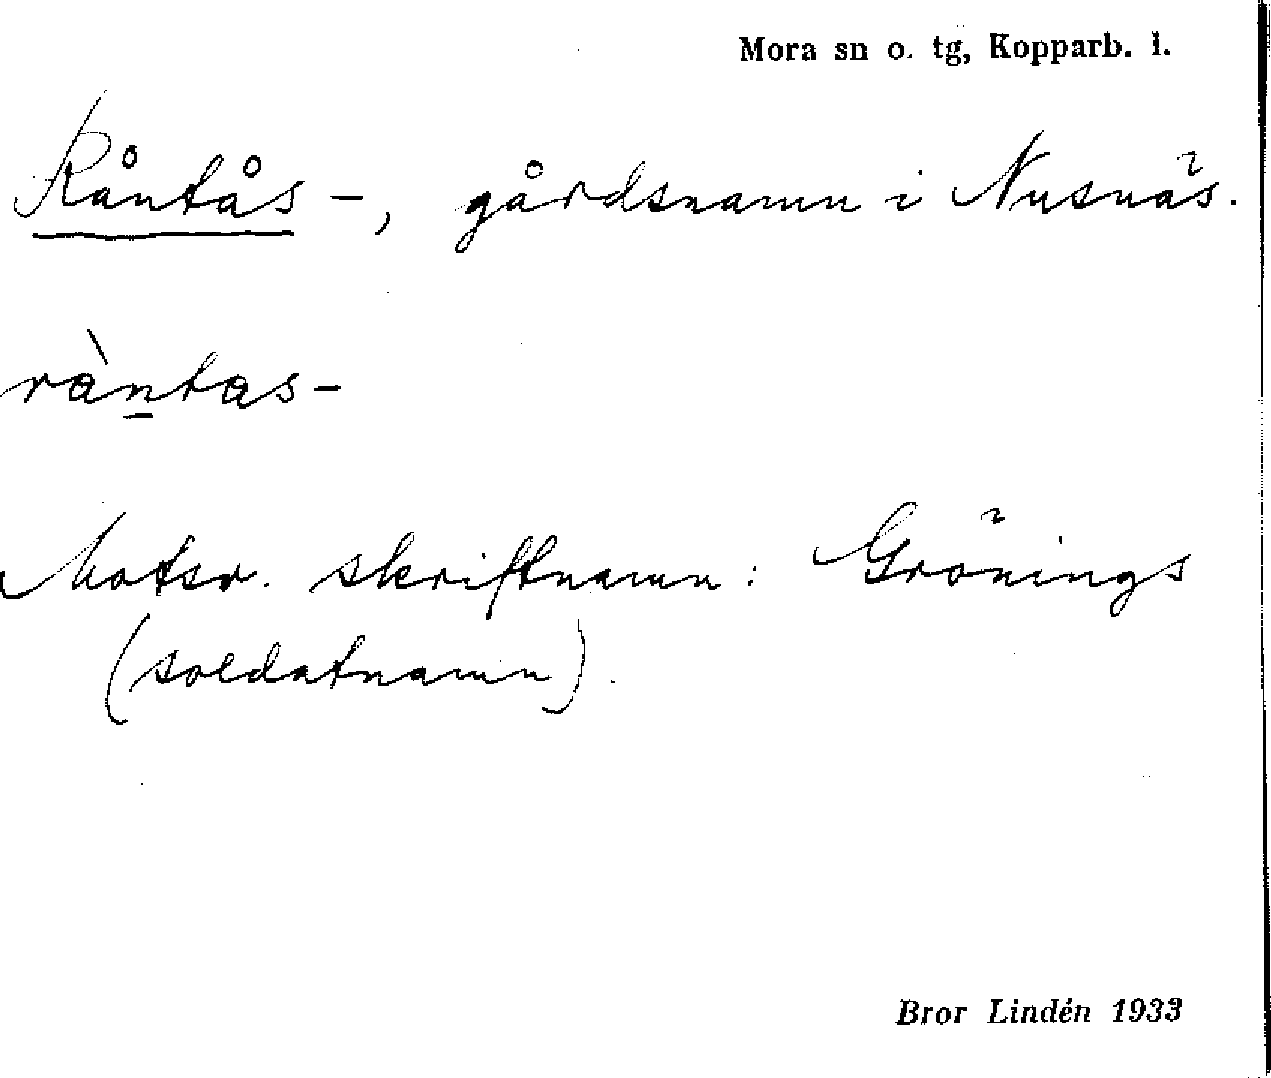 Mora sn o. tg, Kopparb. l.
Råntås-, gårdsnamn i Nusnäs.
ràntas-
Motsv. skriftnamn: Grönings
(soldatnamn).
Bror Lindén 1933